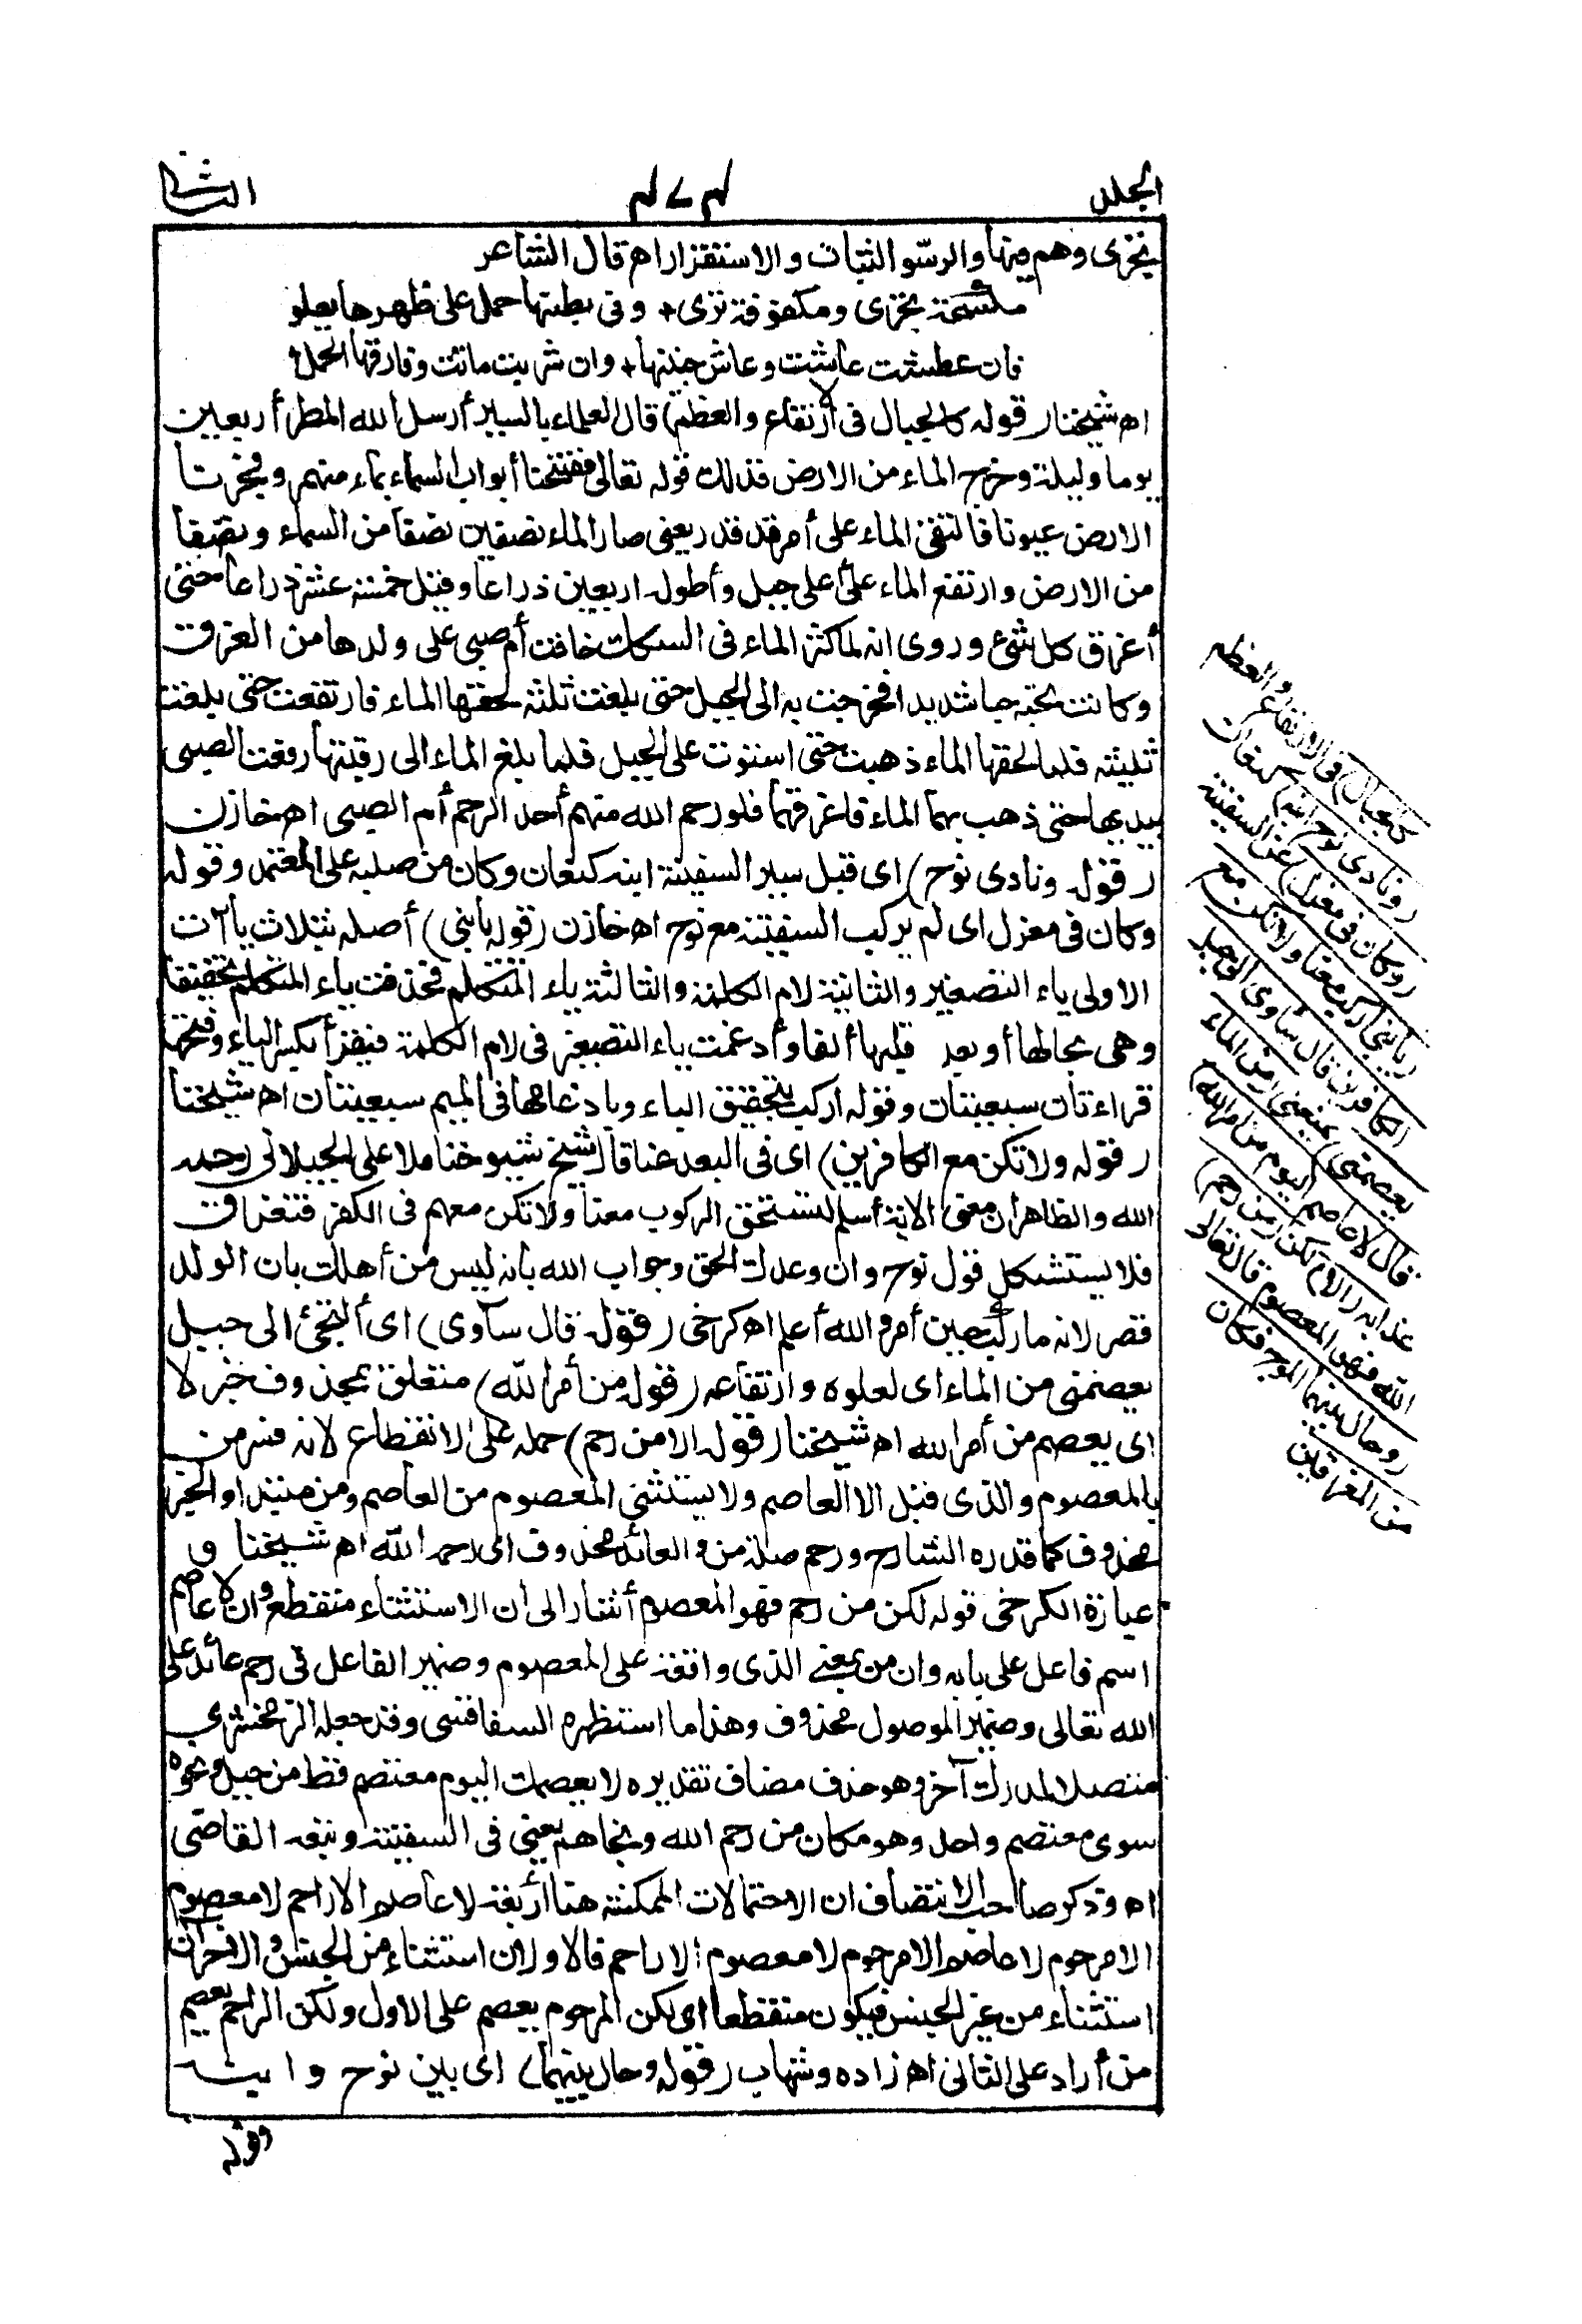 الجلد
٤٧٤
الثانى
تجرى وهم فيها والرسو الثبات والاستقرار اه قال الشاعر
تجرى ومكفوفة ترى + وفى بطنها حمل على ظهرها يعلو
فان عطشت عاشت وعاش جنينها + وان شربت ماتت وفارقها الحمل
اه شيخنا (قوله كالجبال فى الارتفاع والعظم) قال العلماء بالسير أرسل الله المطر أربعين
يوما وليلة وخرج الماء من الارض فذلك قوله تعالى ففتحنا أبواب السماء بماء منهمر وفجرنا
الارض عيونا فالتقى الماء على أمر قد قدر يعنى صار الماء نصفين نصفا من السماء ونصفا
من الارض وارتفع الماء على أعلى جبل وأطوله اربعين ذراعا وقيل خمسة عشر ذراعا حتى
أغرق كل شئ وروى انه لما كثر الماء فى السكك خافت أم صبى على ولدها من الغرق
وكانت تحبه حبا شديدا فخرجت به الى الجبل حتى بلغت ثلثه لحقها الماء فارتفعت حتى بلغت
ثلثيه فلما لحقها الماء ذهبت حتى استوت على الجبل فلما بلغ الماء الى رقبتها رفعت الصبى
بيديها حتى ذهب بهما الماء فاغرقهما فلو رحم الله منهم أحدا لرحم أم الصبى اه خازن
(قوله ونادى نوح) اى قبل سير السفينة ابنه كنعان وكان من صلبه على المعتمد وقوله
وكان فى معزل اى لم يركب السفينة مع نوح اه خازن (قوله يا بنى) أصله بثلاث يا آت
الاولى ياء التصغير والثانية لام الكلمة والثالثة ياء المتكلم فحذفت ياء المتكلم تخفيفا
وهى بحالها أو بعد قلبها ألفا وأدغمت ياء التصغير فى لام الكلمة فيقرأ بكسر الياء وفتحها
قراءتان سبعيتان وقوله اركب بتحقيق الباء وبادغامها فى الميم سبعيتان اه شيخنا
(قوله ولا تكن مع الكافرين) اى فى البعد عنا قال شيخ شيوخنا ملا على الجيلانى رحمه
الله والظاهر أن معنى الآية أسلم لتستحق الركوب معنا ولا تكن معهم فى الكفر فتغرق
فلا يستشكل قول نوح وان وعدك الحق وجواب الله بانه ليس من أهلك بان الولد
قصر لانه ما ركب حين أمره والله أعلم اه كرخى (قوله قال سآوى) اى ألتجئ الى جبل
يعصمنى من الماء اى لعلوه وارتفاعه (قوله من أمر الله) متعلق بمحذوف خبر لا
اى يعصم من أمر الله اه شيخنا (قوله الا من رحم) حمله على الانقطاع لانه فسر من
بالمعصوم والذى قبل الا العاصم ولا يستثنى المعصوم من العاصم ومن مبتدا والخبر
محذوف كما قدره الشارح ورحم صلة من والعائد محذوف اى رحمه الله اه شيخنا و
عبارة الكرخى قوله لكن من رحم فهو المعصوم أشار الى ان الاستثناء منقطع وان لا عاصم
اسم فاعل على بابه وان من بمعنى الذى واقعة على المعصوم وضمير الفاعل فى رحم عائد على
الله تعالى وضمير الموصول محذوف وهذا ما استظهره السفاقسى وقد جعله الزمخشرى
متصلا لمدرك آخر وهو حذف مضاف تقديره لا يعصمك اليوم معتصم قط من جبل ونحوه
سوى معتصم واحد وهو مكان من رحم الله ونجاهم يعنى فى السفينة وتبعه القاضى
اه وذكر صاحب الانتصاف ان الاحتمالات الممكنة هنا أربعة لا عاصم الا راحم لا معصوم
الا مرحوم لا عاصم الا مرحوم لا معصوم الا راحم فالاولان استثناء من الجنس والآخران
استثناء من غير الجنس فيكون منقطعا اى لكن المرحوم يعصم على الاول ولكن الراحم يعصم
من أراد على الثانى اه زاده وشهاب (قوله وحال بينهما) اى بين نوح وابنه
قوله
كالجبال) فى الارتفاع والعظم
(ونادى نوح ابنه) كنعان
(وكان فى معزل) عن السفينة
(يا بنى اركب معنا ولا تكن مع
الكافرين قال سآوى الى جبل
يعصمنى) يمنعنى (من الماء
قال لا عاصم اليوم من أمر الله)
عذابه (الا) لكن (من رحم)
الله فهو المعصوم قال تعالى
(وحال بينهما الموج فكان
من المغرقين